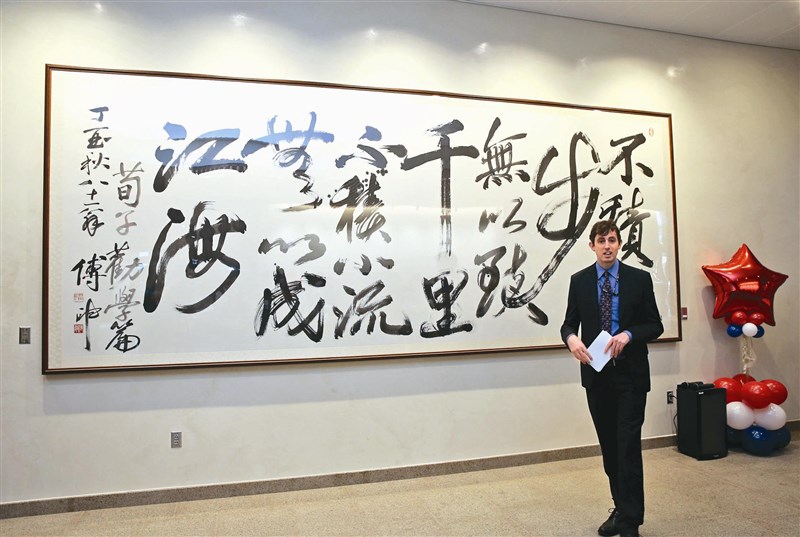 不積
步
無以
千里
不積小流
無以成
江海
荀子 勸學篇
丁酉秋八十二翁 傅申